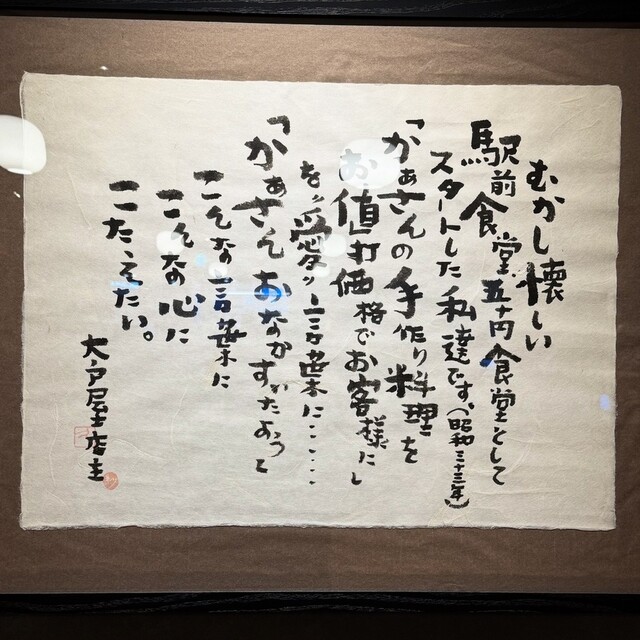 むかし懐しい
駅前食堂五十円食堂として
スタートした私達です。(昭和三十三年)
「かあさんの手作り料理を
お値打価格でお客様に」
を〃愛〃言葉に……
「かぁさんおなかすいたよう」
こんな言葉に
こんな心に
こたえたい。
大戸屋店主